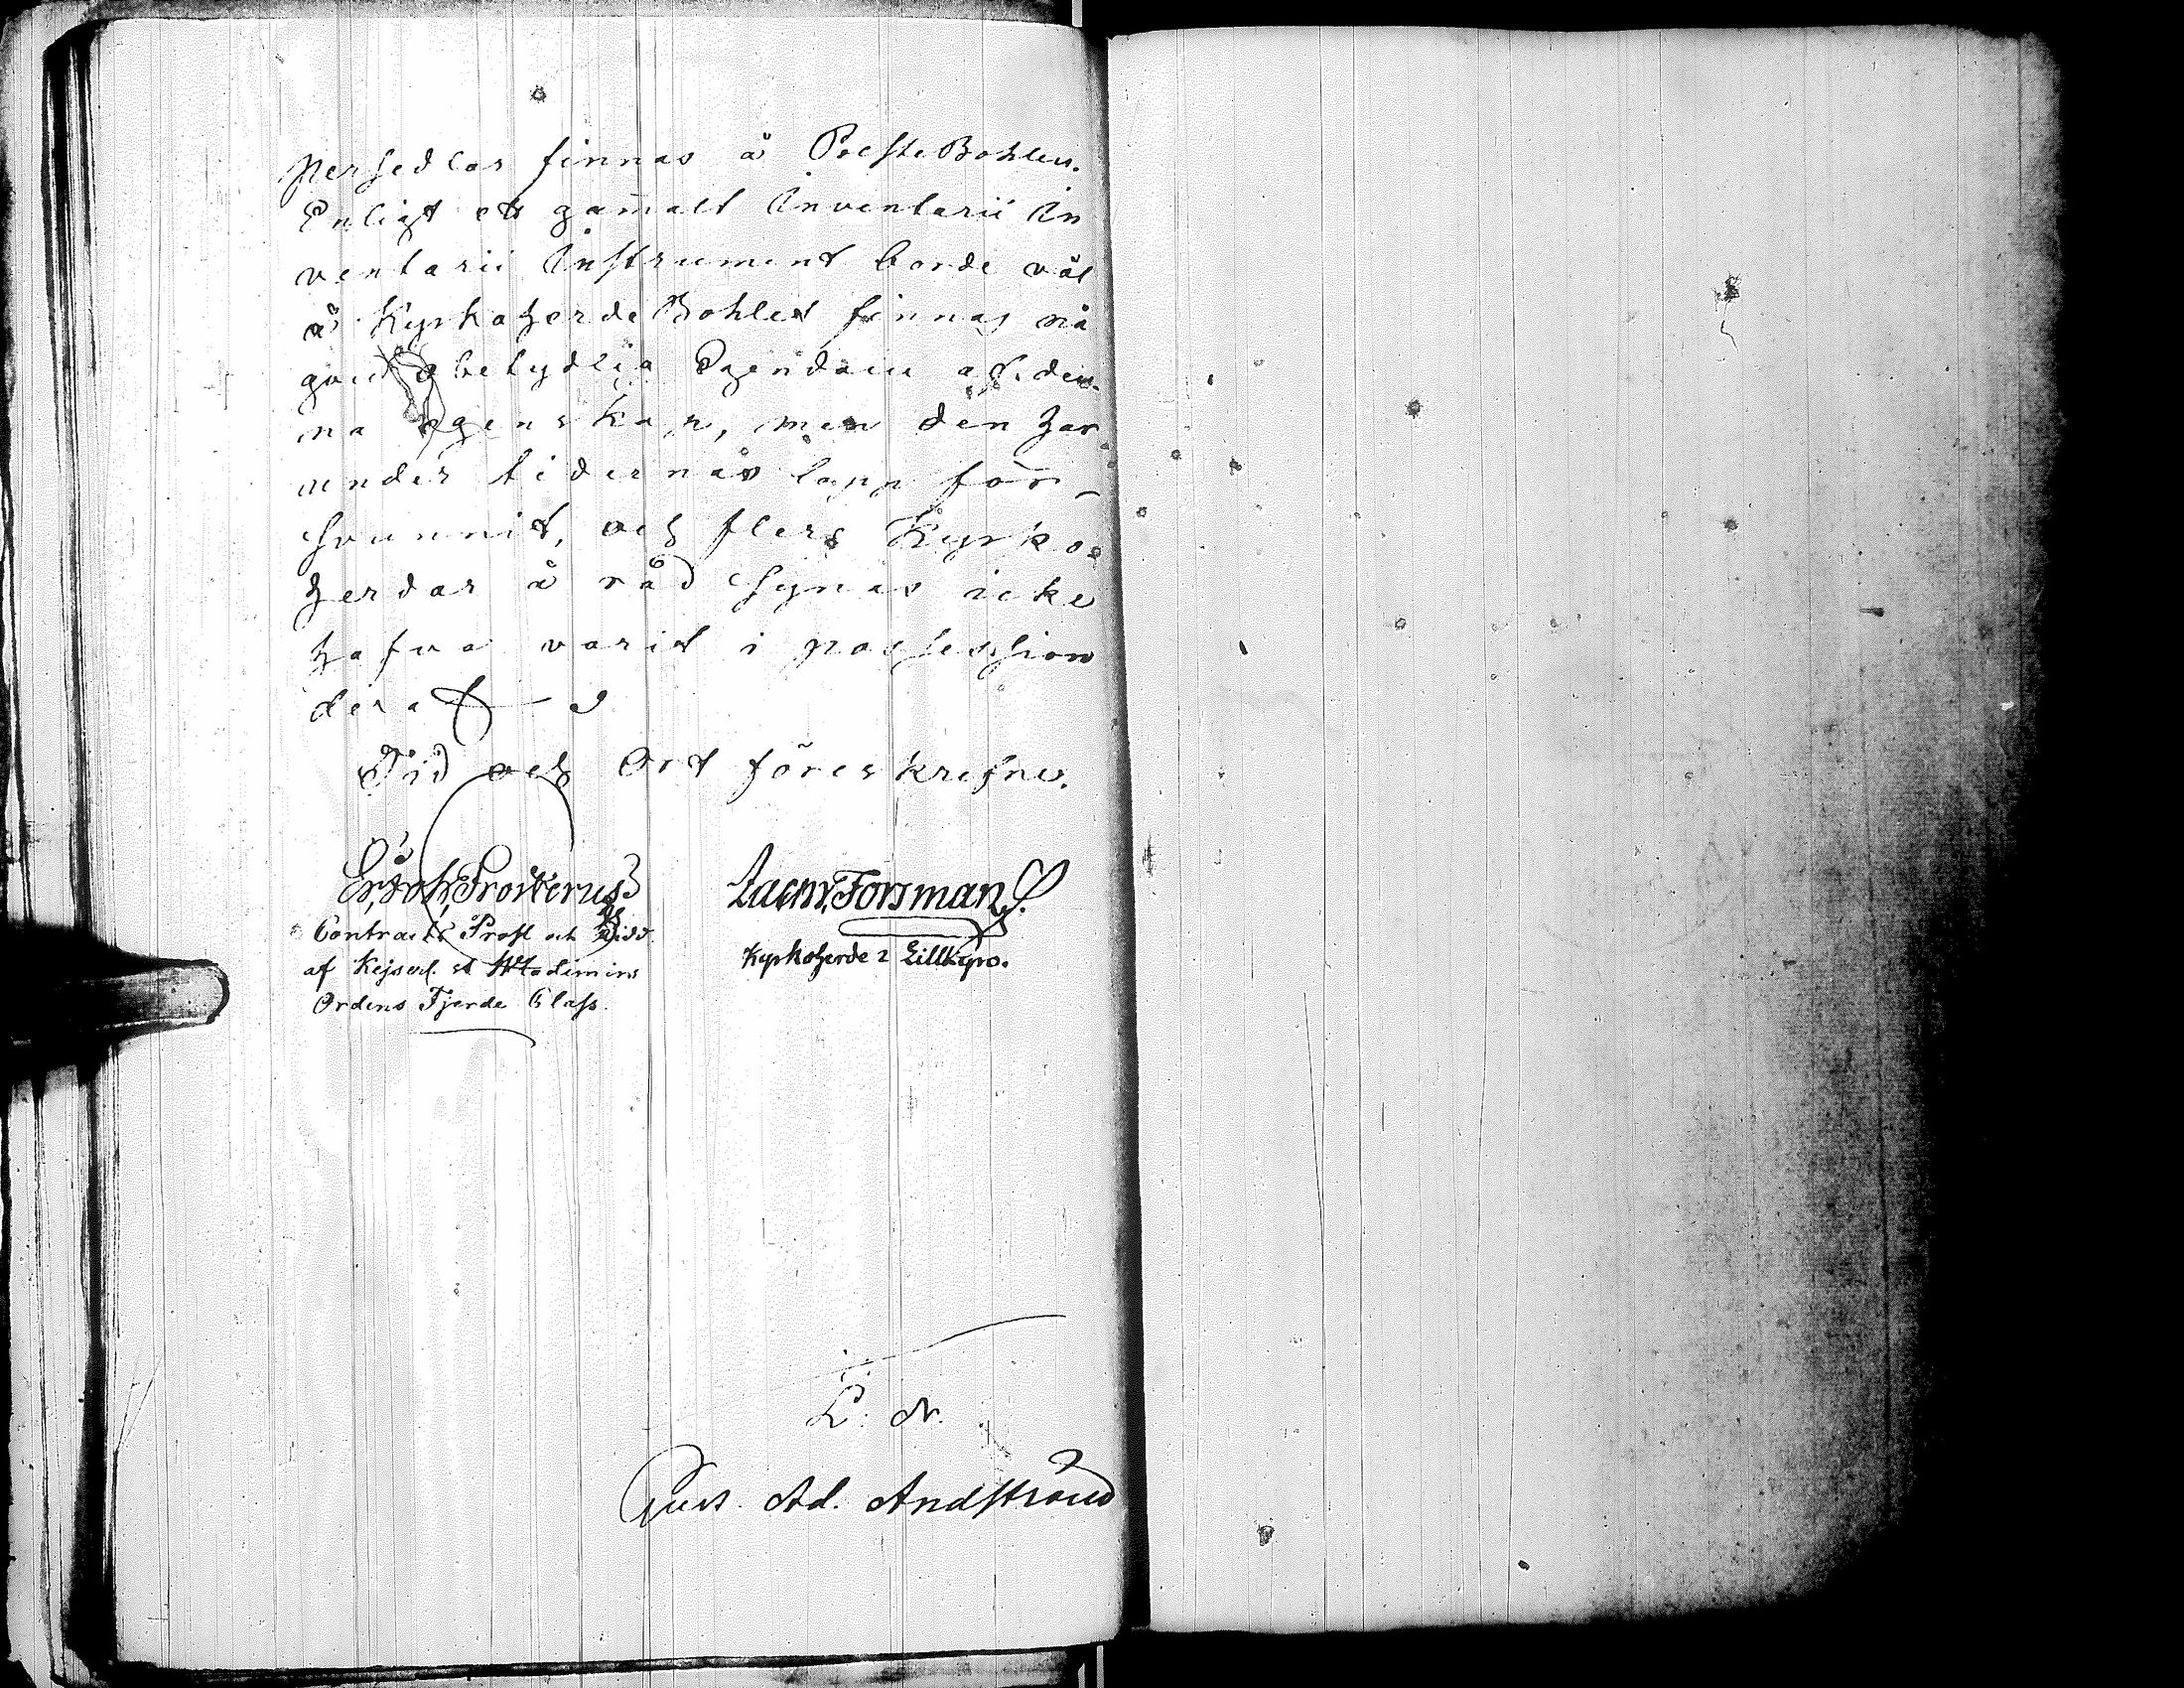 persedlar finnas å PresteBohlen.
Enligt ett gam̄alt Inventarii In
ventarii Instrument borde väl
å KyrkoherdeBohlet finnas nå
gon betydlig Egendom af den
na egenskap, men den har
under tidernas lopp för-
svunnit, och flere Kyrko-
herdar å råd synas icke
hafva varit i possession
deraf
Tid och Ort föreskrefne.
Er. Joh. Frosterus
Zachr. Forsman
Contracts Prost och Ridd.
af Kejserl. St Wladimirs
Ordens Fjerde Class.
Kyrkoherde i Lillkyro.
L. N.
Gust. Ad. Andström